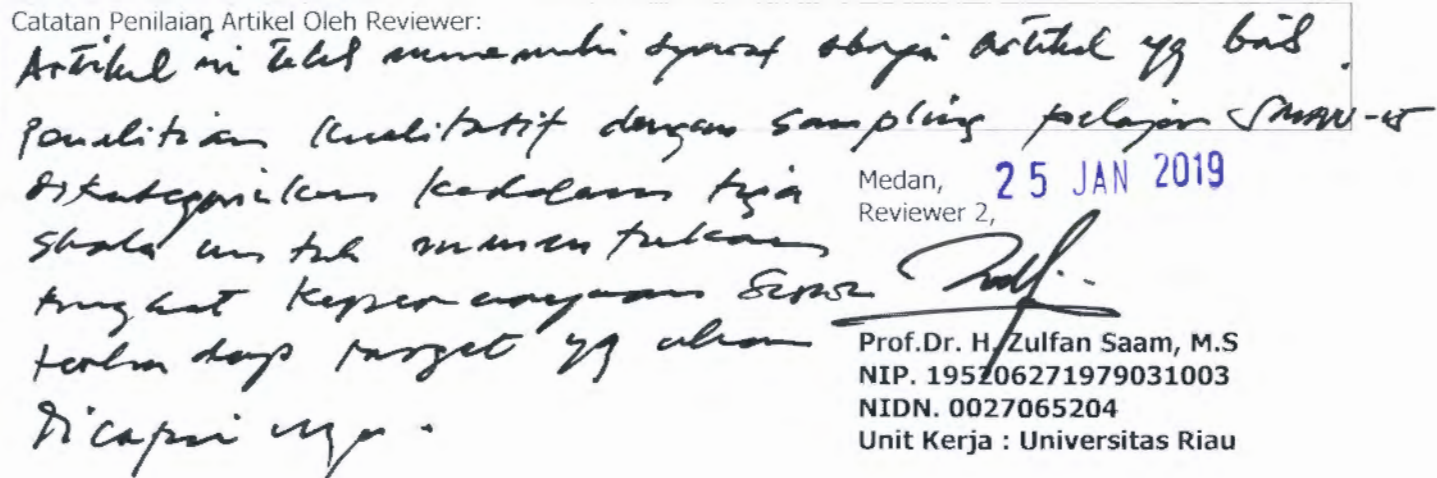 Catatan Penilaian Artikel Oleh Reviewer:
Artikel ini telah memenuhi syarat sbagai artikel yg baik.
Penelitian kualitatif dengan sampling pelajar
dikategorikan kedalam tiga
skala untuk menentukan
tingkat kepercayaan siswa
terhadap target yg akan
dicapai nya.
Medan, 25 JAN 2019
Reviewer 2,
Prof.Dr. H. Zulfan Saam, M.S
NIP. 195206271979031003
NIDN. 0027065204
Unit Kerja : Universitas Riau